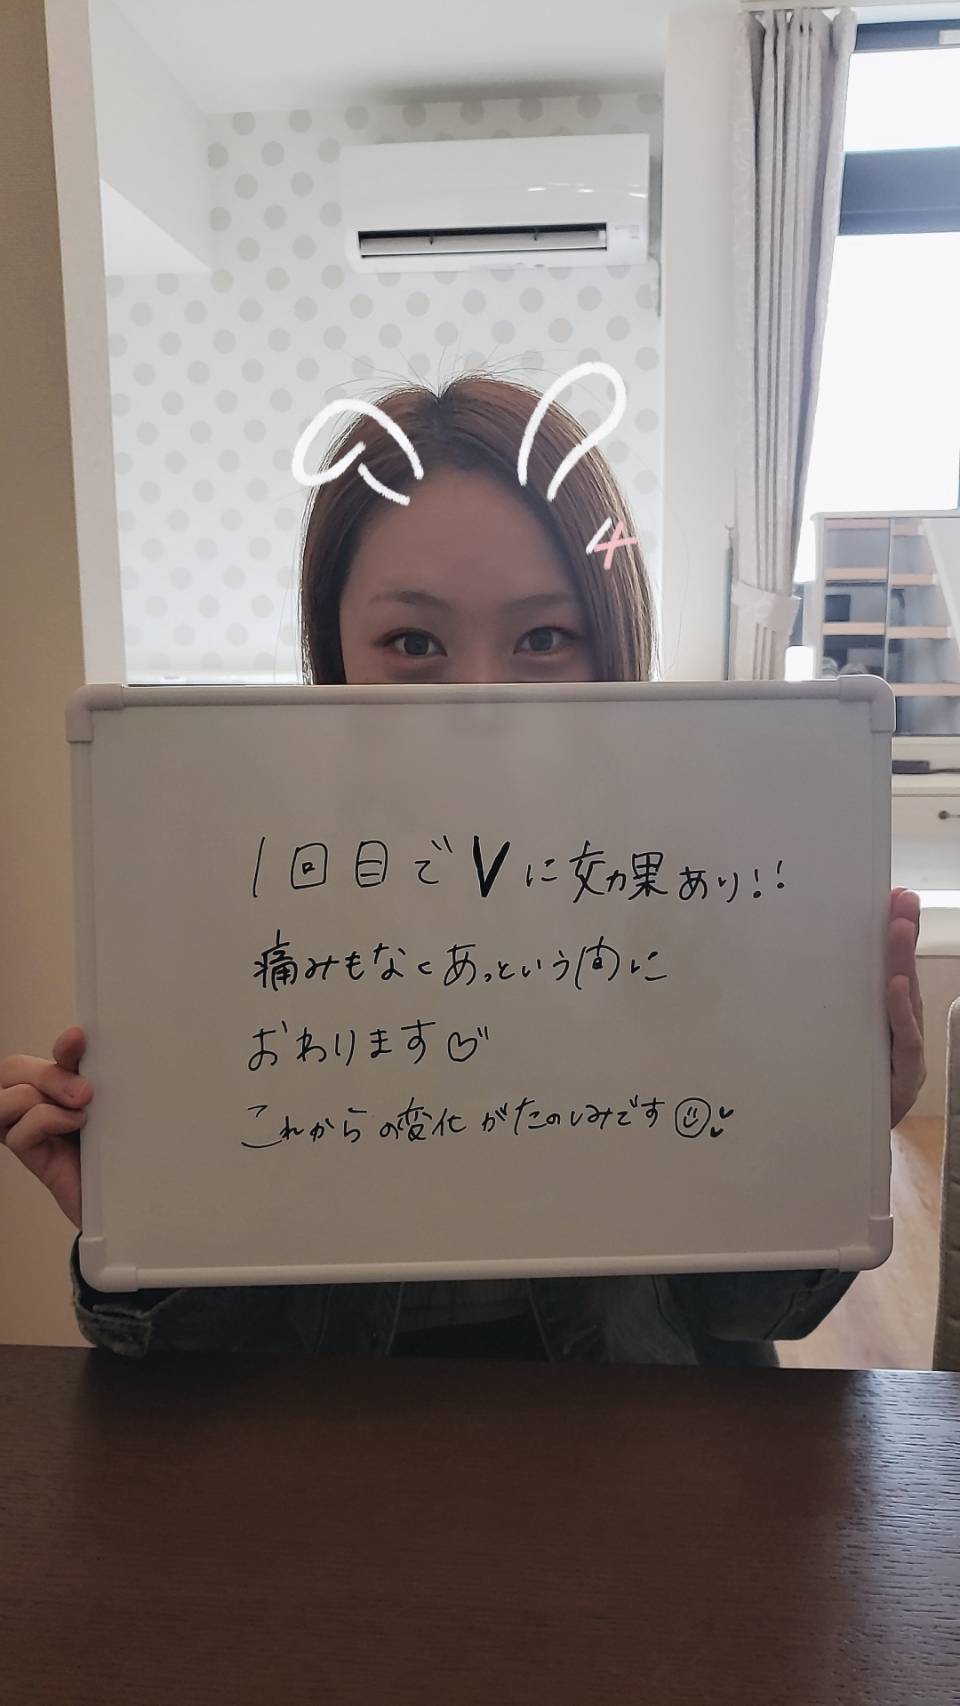 1回目でVに効果あり!!
痛みもなくあっという間に
おわります♡
これからの変化がたのしみです☺♥♥